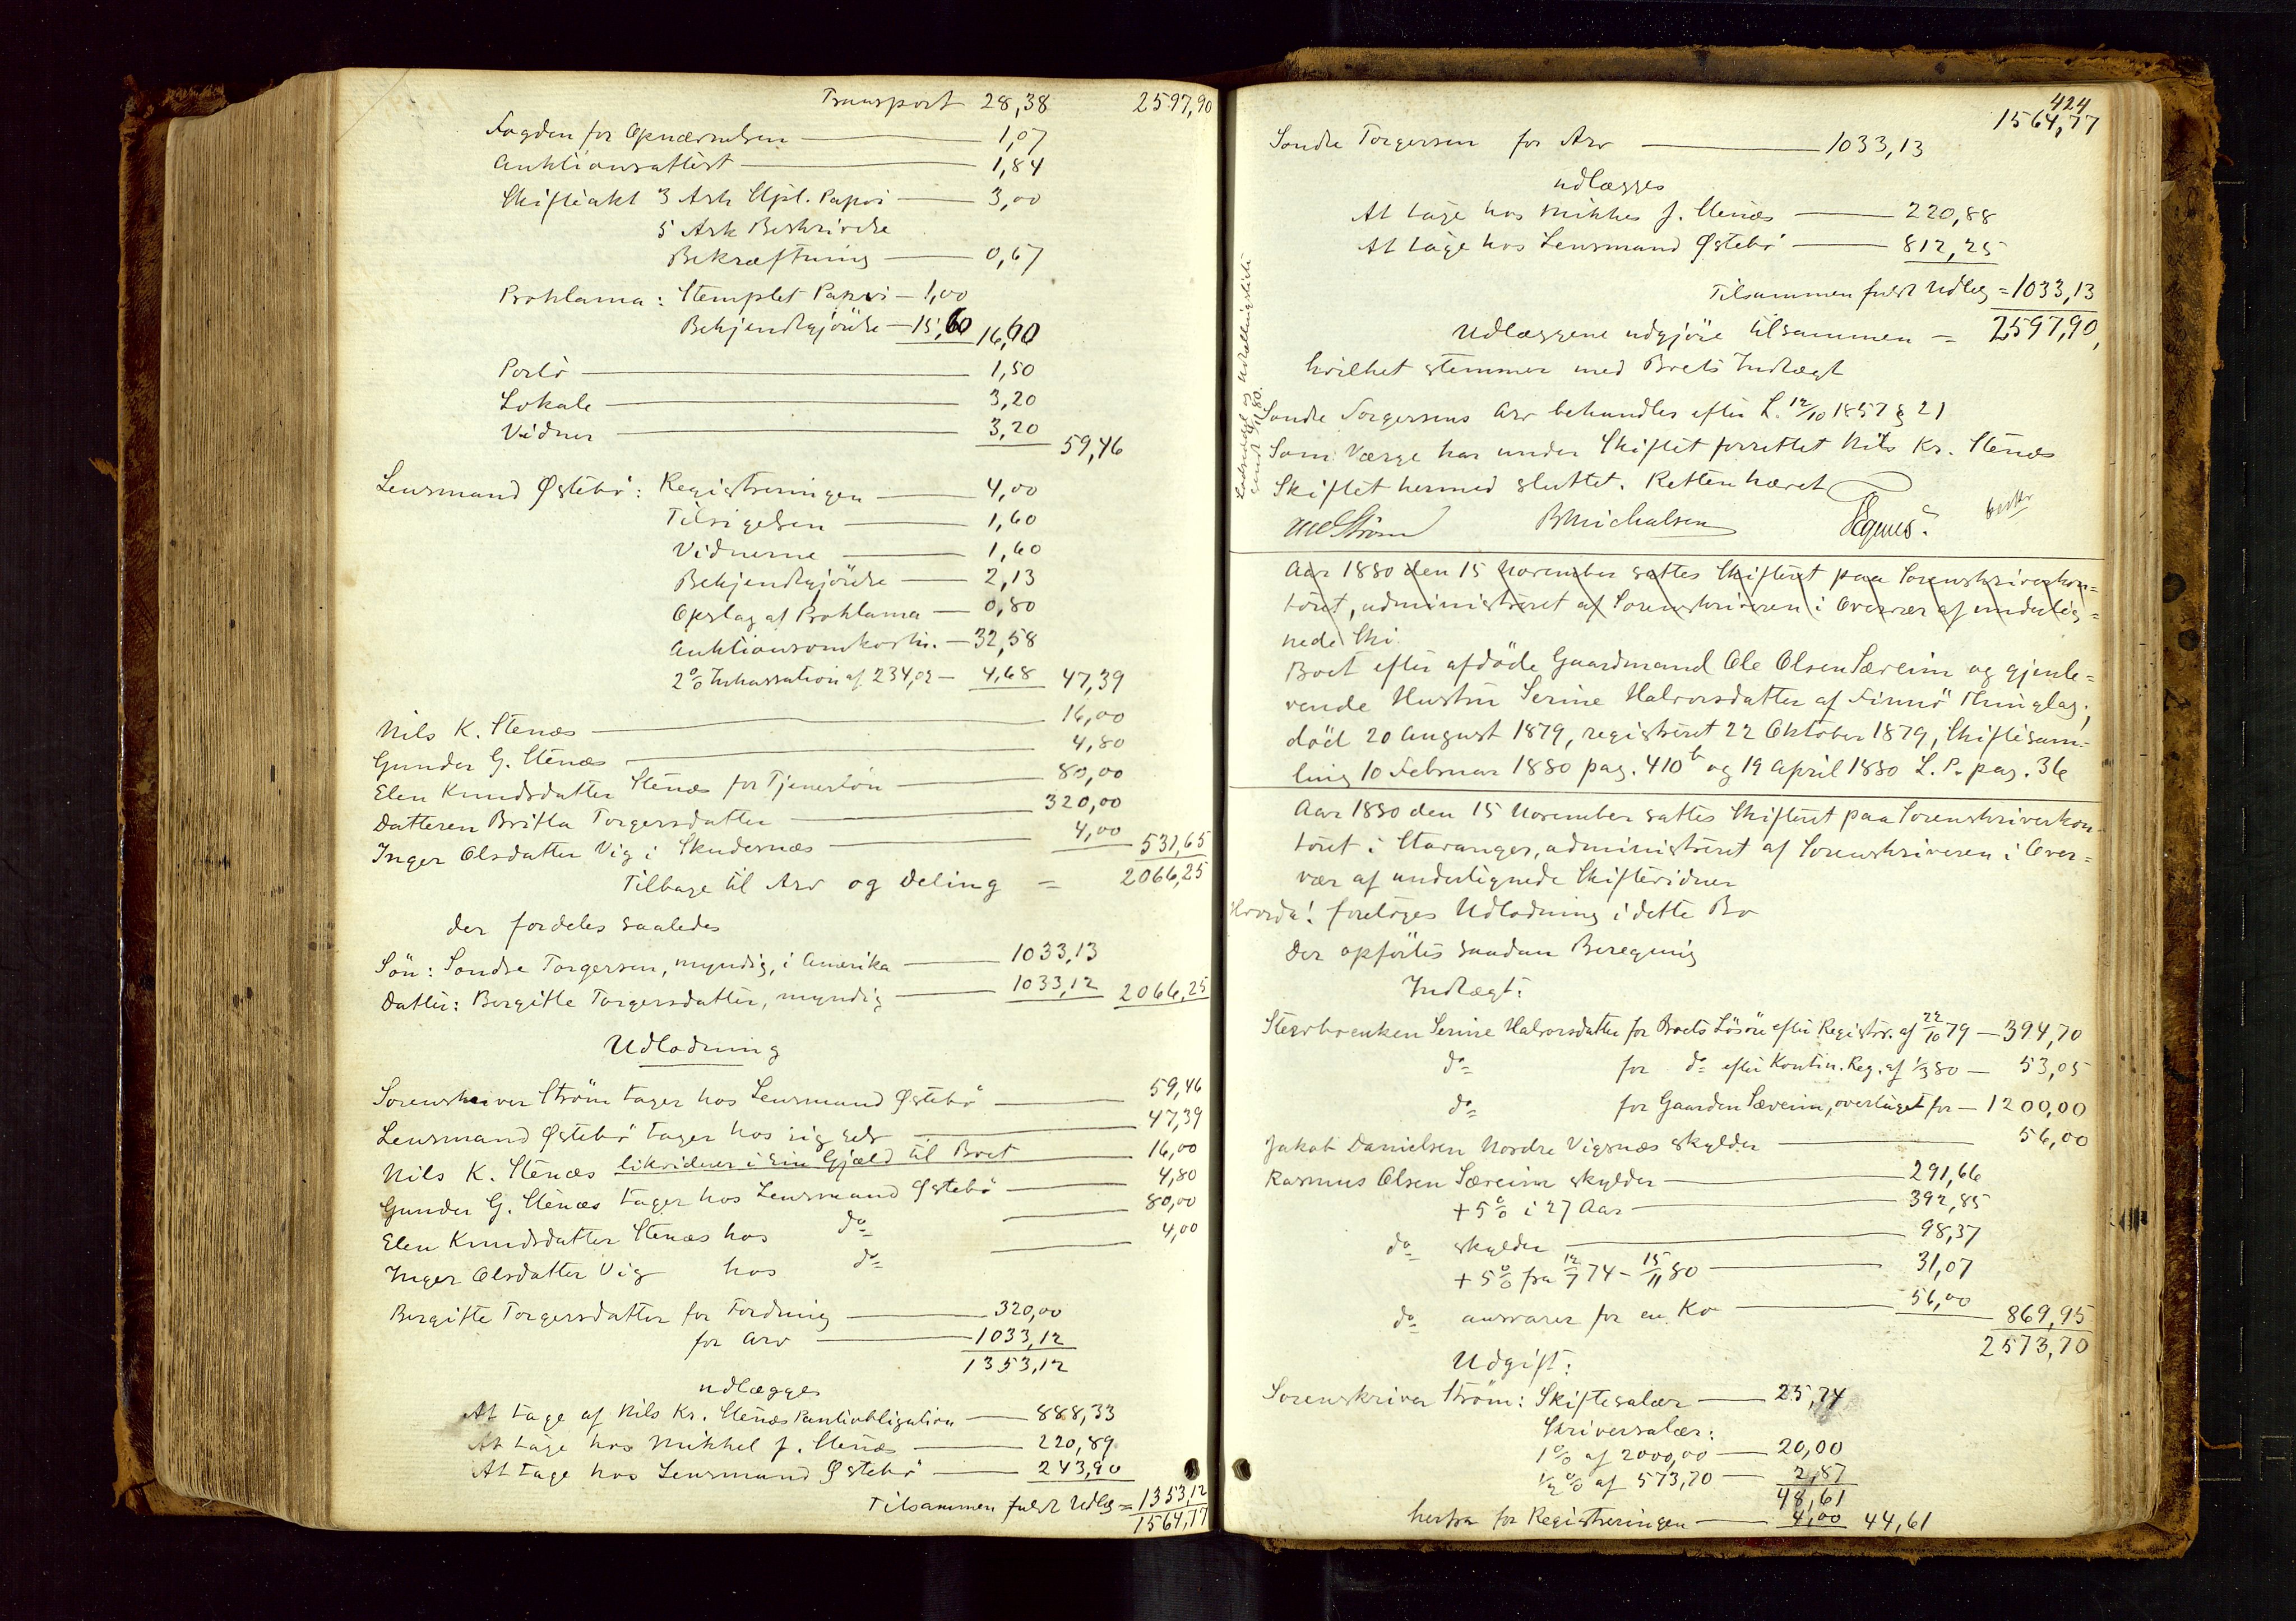 Transport 28,38 2597,90
Fogden for Opnævnelsen — 1,07
Auktionsattest — 1,84
Skifteakt 3 Ark Stpl. Papir — 3,00
5 Ark Beskrivelse
Bekræftning — 0,67
Proklama: Stemplet Papir — 1,00
Bekjendtgjörelse — 15,60 16,60
Porto — 1,50
Lokale — 3,20
Vidner — 3,20 59,46
Lensmand Østebö: Registreringen — 4,00
Tilsigelsen — 1,60
Vidnerne — 1,60
Bekjendtgjörelse — 2,13
Opslag af Proklama — 0,80
Auktionsomkostn. — 32,58
2% Inkassation af 234,02 — 4,68 47,39
Nils K. Stenæs — 16,00
Gunder G. Stenæs — 4,80
Elen Knudsdatter Stenæs for Tjenerlön — 80,00
Datteren Britta Torgersdatter — 320,00
Inger Olsdatter Vig i Skudesnæs — 4,00 531,65
Tilbage til Arv og Deling = 2066,25
der fordeles saaledes
Sön: Sondre Torgersen, myndig, i Amerika — 1033,13
Datter: Bergitte Torgersdatter, myndig — 1033,12 2066,25
Udlodning
Sorenskriver Ström tager hos Lensmand Østebö — 59,46
Lensmand Østebö tager hos sig selv — 47,39
Nils K. Stenæs likviderer i sin Gjæld til Boet — 16,00
Gunder G. Stenæs tager hos Lensmand Østebö — 4,80
Elen Knudsdatter Stenæs hos do — 80,00
Inger Olsdatter Vig hos do — 4,00
Bergitte Torgersdatter for Fordring — 320,00
for Arv — 1033,12
1353,12
udlægges
At tage af Nils Kr. Stenæs Pantiobligation — 888,33
At tage hos Mikkel J. Stenæs — 220,89
At tage hos Lensmand Østebö — 243,90
Tilsammen fuldt Udlæg = 1353,12
1564,77
424
1564,77
Sondre Torgersen for Arv — 1033,13
udlægges
At tage hos Mikkel J. Stenæs — 220,88
At tage hos Lensmand Østebö — 812,25
Tilsammen fuldt Udlæg = 1033,13
Udlæggene udgjöre tilsammen = 2597,90,
hvilket stemmer med Boets Indtægt
Sondre Torgersens Arv behandles efter L. 12/10 1857 § 21
Som Værge har under Skiftet forrettet Nils Kr. Stenæs
Skiftet hermed sluttet. Retten hævet
Ström B Michalsen
Aar 1880 den 15 November sattes Skifteret paa Sorenskriverkon=
toret, administreret af Sorenskriveren i Overvær af undertég=
nede Ski
Boet efter afdöde Gaardmand Ole Olsen Særeim og gjenle=
vende Hustru Serine Halvorsdatter af Finnö Thinglag;
död 20 August 1879, registreret 22 Oktober 1879, Skiftesam=
ling 10 Februar 1880 pag. 410 b og 19 April 1880 L. P. pag. 36
Aar 1880 den 15 November sattes Skifteret paa Sorenskriverkon=
toret i Stavanger, administreret af Sorenskriveren i Over=
vær af undertegnede Skiftevidner
Hvorda! foretoges Udlodning i dette Bo
Der opförtes saadan Beregning
Indtægt:
Stervboenken Serine Halvorsdatter for Boets Lösöre efter Registr. af 22/10 79 — 394,70
do for do efter Kontin. Reg. af 1/3 80 — 53,05
do for Gaarden Særeim, overtaget for — 1200,00
Jakob Danielsen Nordre Vignæs skylder — 56,00
Rasmus Olsen Særeim skylder — 291,66
+ 5% i 27 Aar — 392,85
do skylder — 98,37
+ 5% fra 12/7 74 - 15/11 80 — 31,07
do ansvarer for en Ko — 56,00 869,95
2573,70
Udgift:
Sorenskriver Ström: Skiftesalær — 25,74
Skriversalær:
1% af 2000,00 — 20,00
½% af 573,70 — 2,87
48,61
herfra for Registreringen — 4,00 44,61